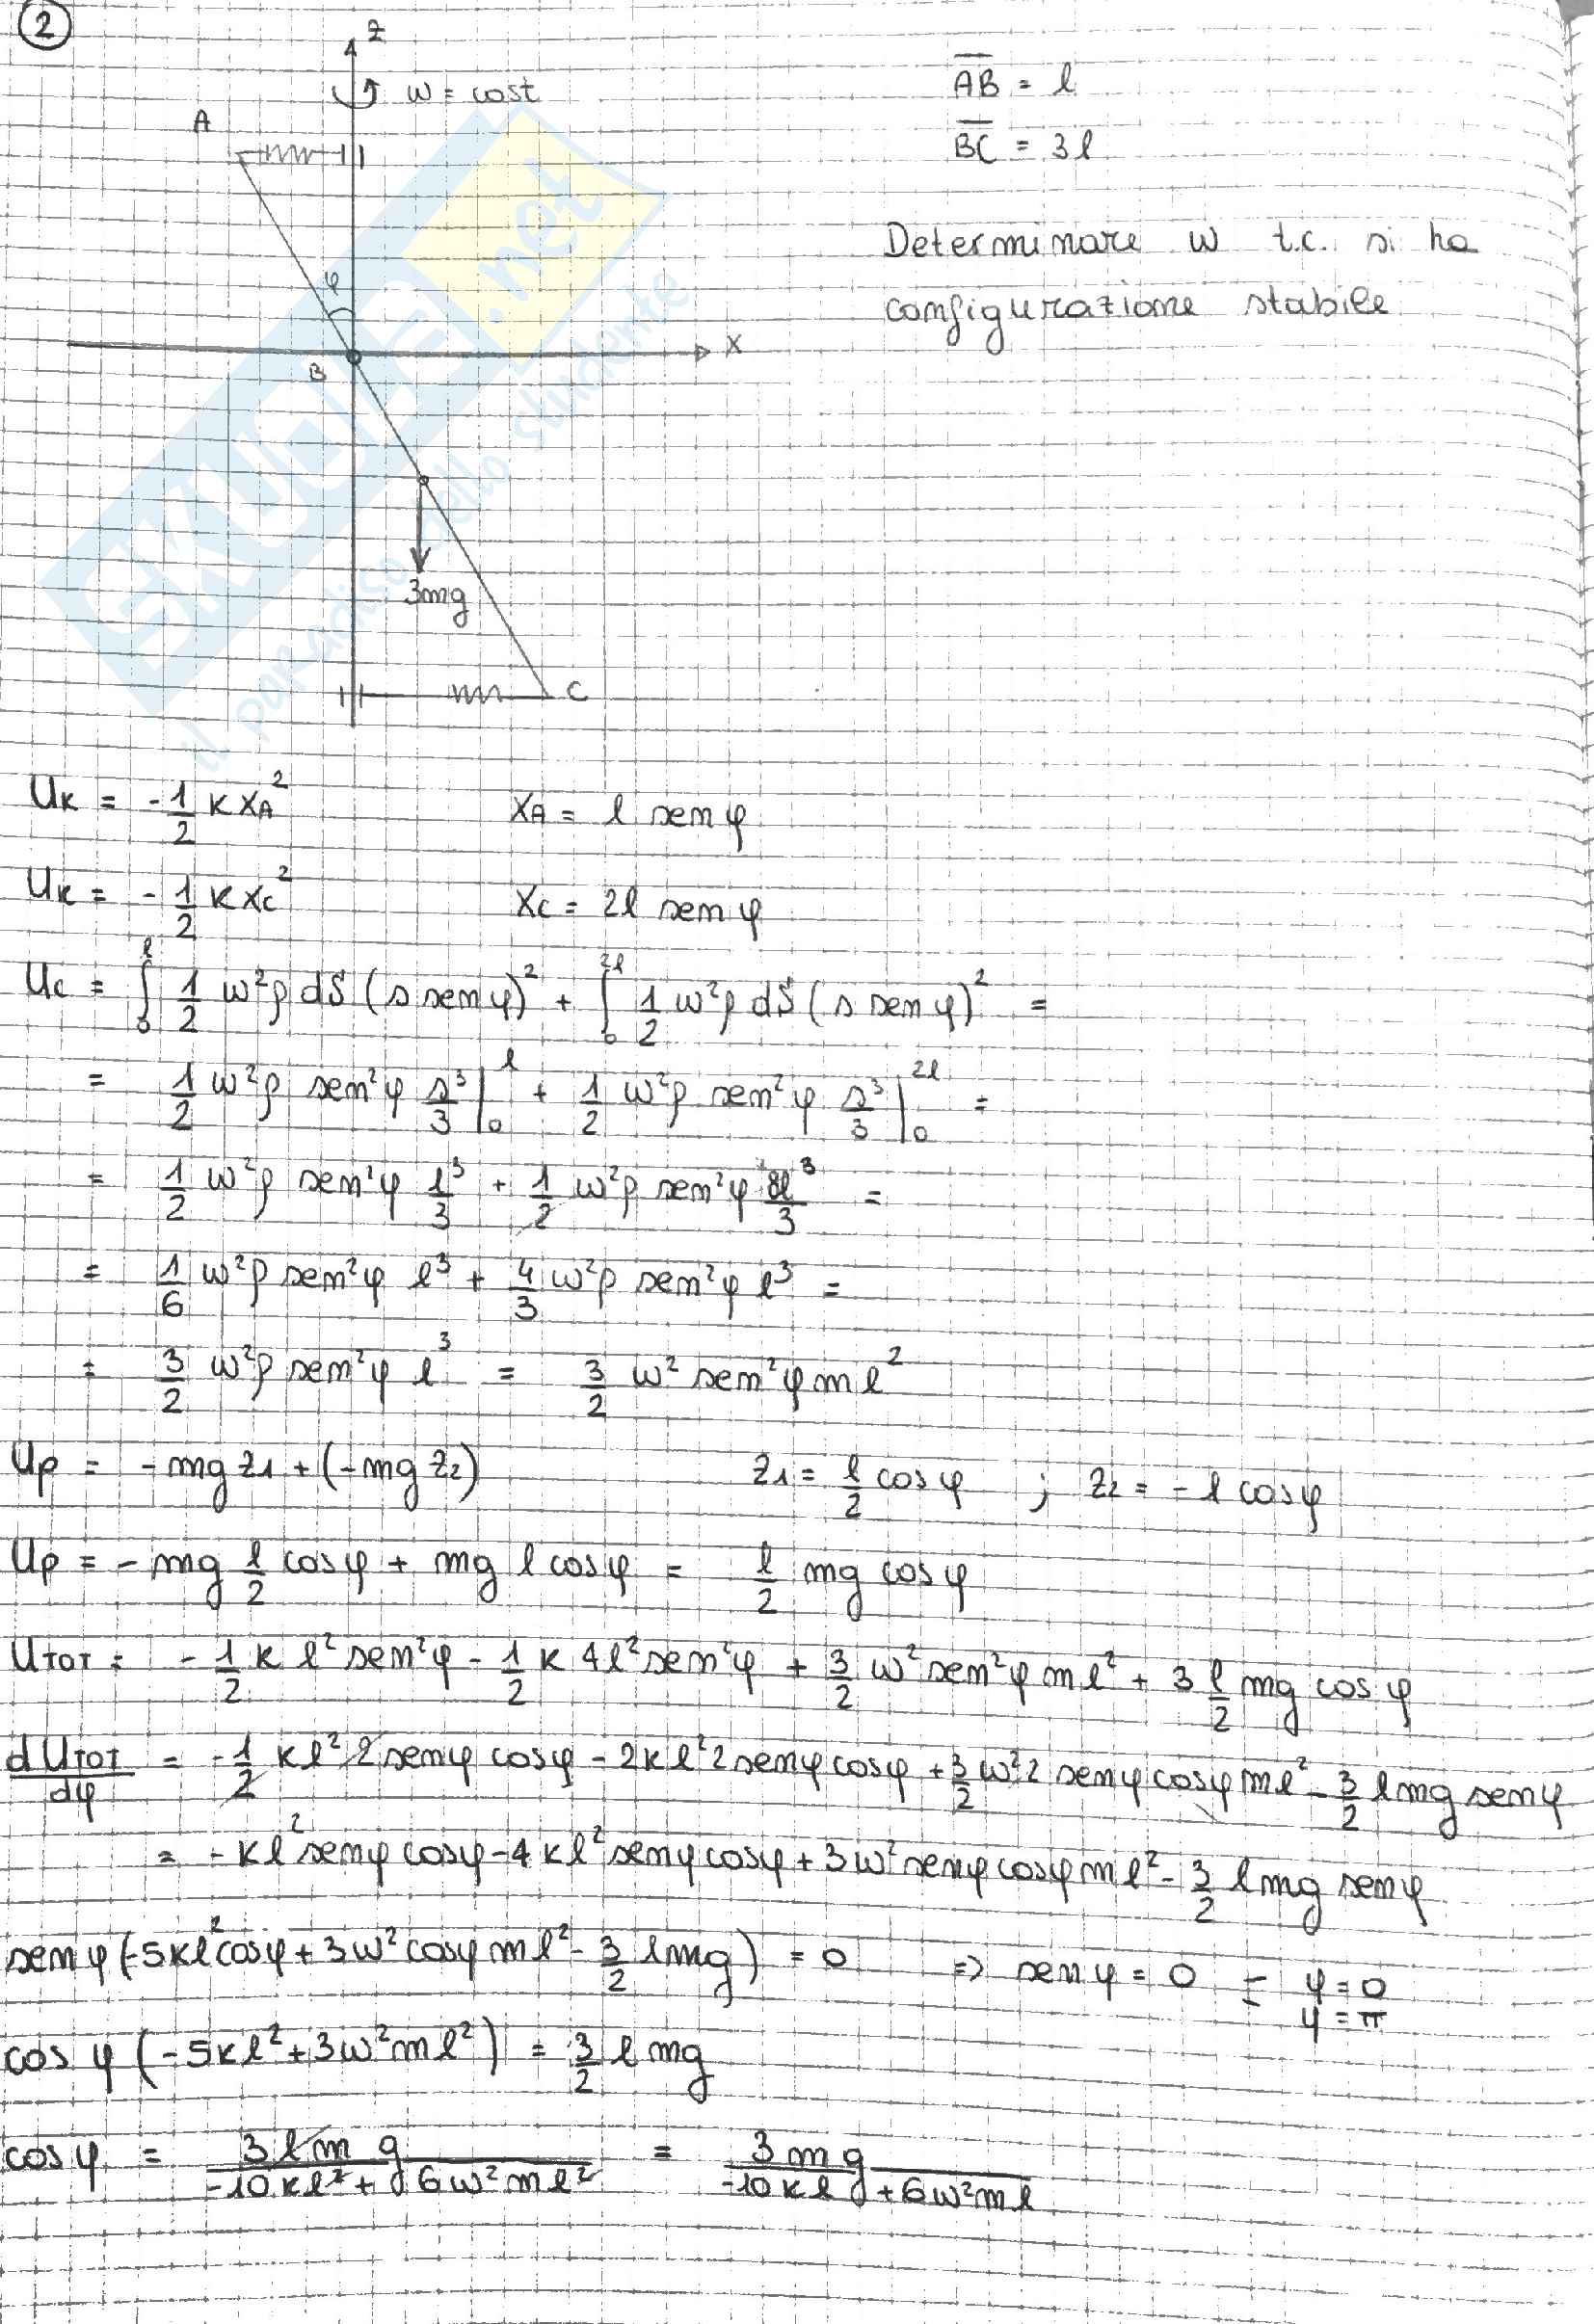 2
z
ω = cost
A
AB = l
BC = 3l
Determinare ω t.c. si ha
configurazione stabile
φ
x
B
3mg
C
SKUOLA.net
il paradiso dello studente
Uk = -1/2 k xA²    xA = l sen φ
Uk = -1/2 k xc²    xc = 2l sen φ
Uc = ∫₀^l 1/2 ω²ρ dS (s sen φ)² + ∫₀^2l 1/2 ω²ρ dS (s sen φ)² =
= 1/2 ω²ρ sen²φ s³/3 |₀^l + 1/2 ω²ρ sen²φ s³/3 |₀^2l =
= 1/2 ω²ρ sen²φ l³/3 + 1/2 ω²ρ sen²φ 8l³/3 =
= 1/6 ω²ρ sen²φ l³ + 4/3 ω²ρ sen²φ l³ =
= 3/2 ω²ρ sen²φ l³ = 3/2 ω² sen²φ m l²
Up = -mg z1 + (-mg z2)    z1 = l/2 cos φ ; z2 = -l cos φ
Up = -mg l/2 cos φ + mg l cos φ = l/2 mg cos φ
UTOT = -1/2 k l² sen²φ - 1/2 k 4l² sen²φ + 3/2 ω² sen²φ m l² + 3 l/2 mg cos φ
dUTOT/dφ = -1/2 k l² 2 sen φ cos φ - 2k l² 2 sen φ cos φ + 3/2 ω² 2 sen φ cos φ m l² - 3/2 l mg sen φ
= -k l² sen φ cos φ - 4 k l² sen φ cos φ + 3 ω² sen φ cos φ m l² - 3/2 l mg sen φ
sen φ (-5k l² cos φ + 3ω² cos φ m l² - 3/2 l mg) = 0 => sen φ = 0 = φ = 0
φ = π
cos φ (-5k l² + 3ω² m l²) = 3/2 l mg
cos φ = 3 l m g / -10 k l² + 6ω² m l² = 3 m g / -10 k l + 6ω² m l